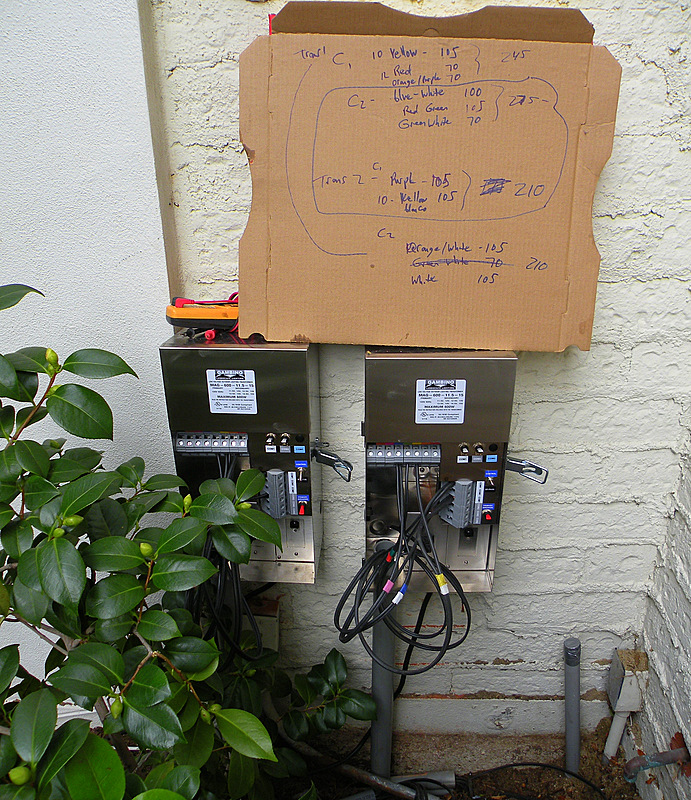 Trans 1 C1 10 Yellow - 105 245
12 Red 70
orange/Purple 70
C2 - blue-White 100 275 -
Red Green 105
Green White 70
C1
Trans 2 - Purpl - 105 210
10 - Yellow 105
C2
orange/White - 105
Green White 70 210
White 105
GAMBINO
MAS-600-11.5-15
MAXIMUM 600W
GAMBINO
MAS-600-11.5-15
MAXIMUM 600W